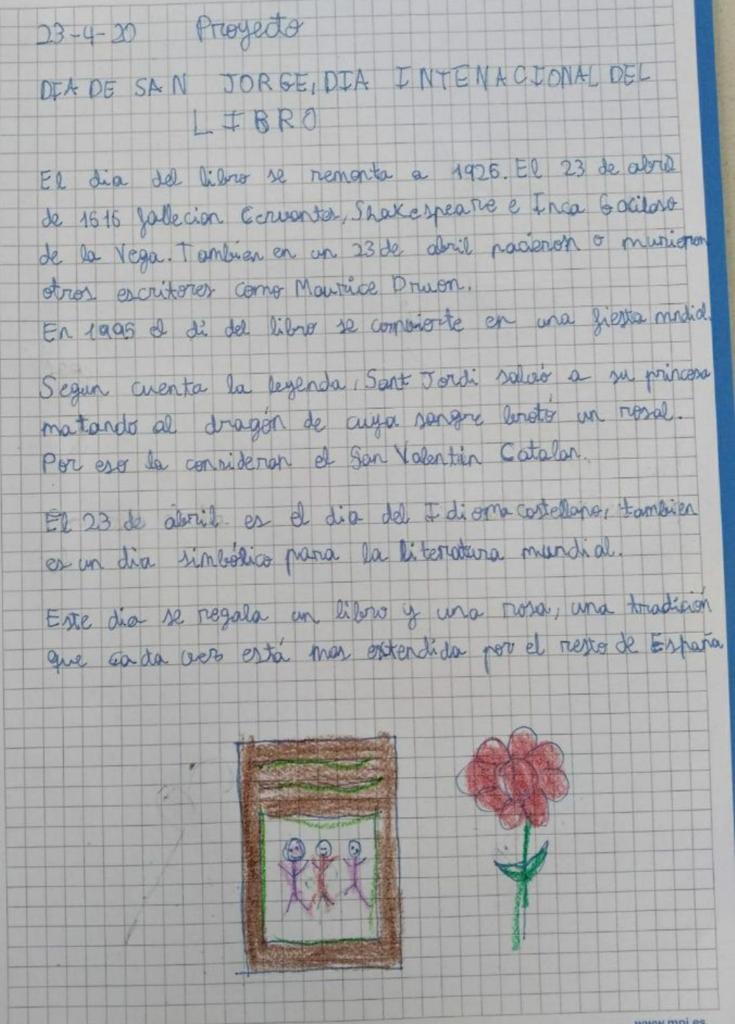 23-4-20 Proyecto
DIA DE SAN JORGE, DIA INTENACIONAL DEL
LIBRO
El dia del libro se remonta a 1926. El 23 de abril
de 1616 fallecion Cervantes, Shakespeare e Inca Gacilaso
de la Vega. Tambien en un 23 de abril nacieron o murieron
otros escritores como Maurice Druon.
En 1995 el di del libro se convierte en una fiesta mndial.
Segun cuenta la leyenda, Sant Jordi salvó a su princesa
matando al dragón de cuya sangre brotó un rosal.
Por eso la consideran el San Valentín Catalan.
El 23 de abril es el dia del Idioma castellano, tambien
es un dia simbólico para la literatura mundial.
Este dia se regala un libro y una rosa, una tradición
que cada vez está mas extendida por el resto de España
www.mpi.es